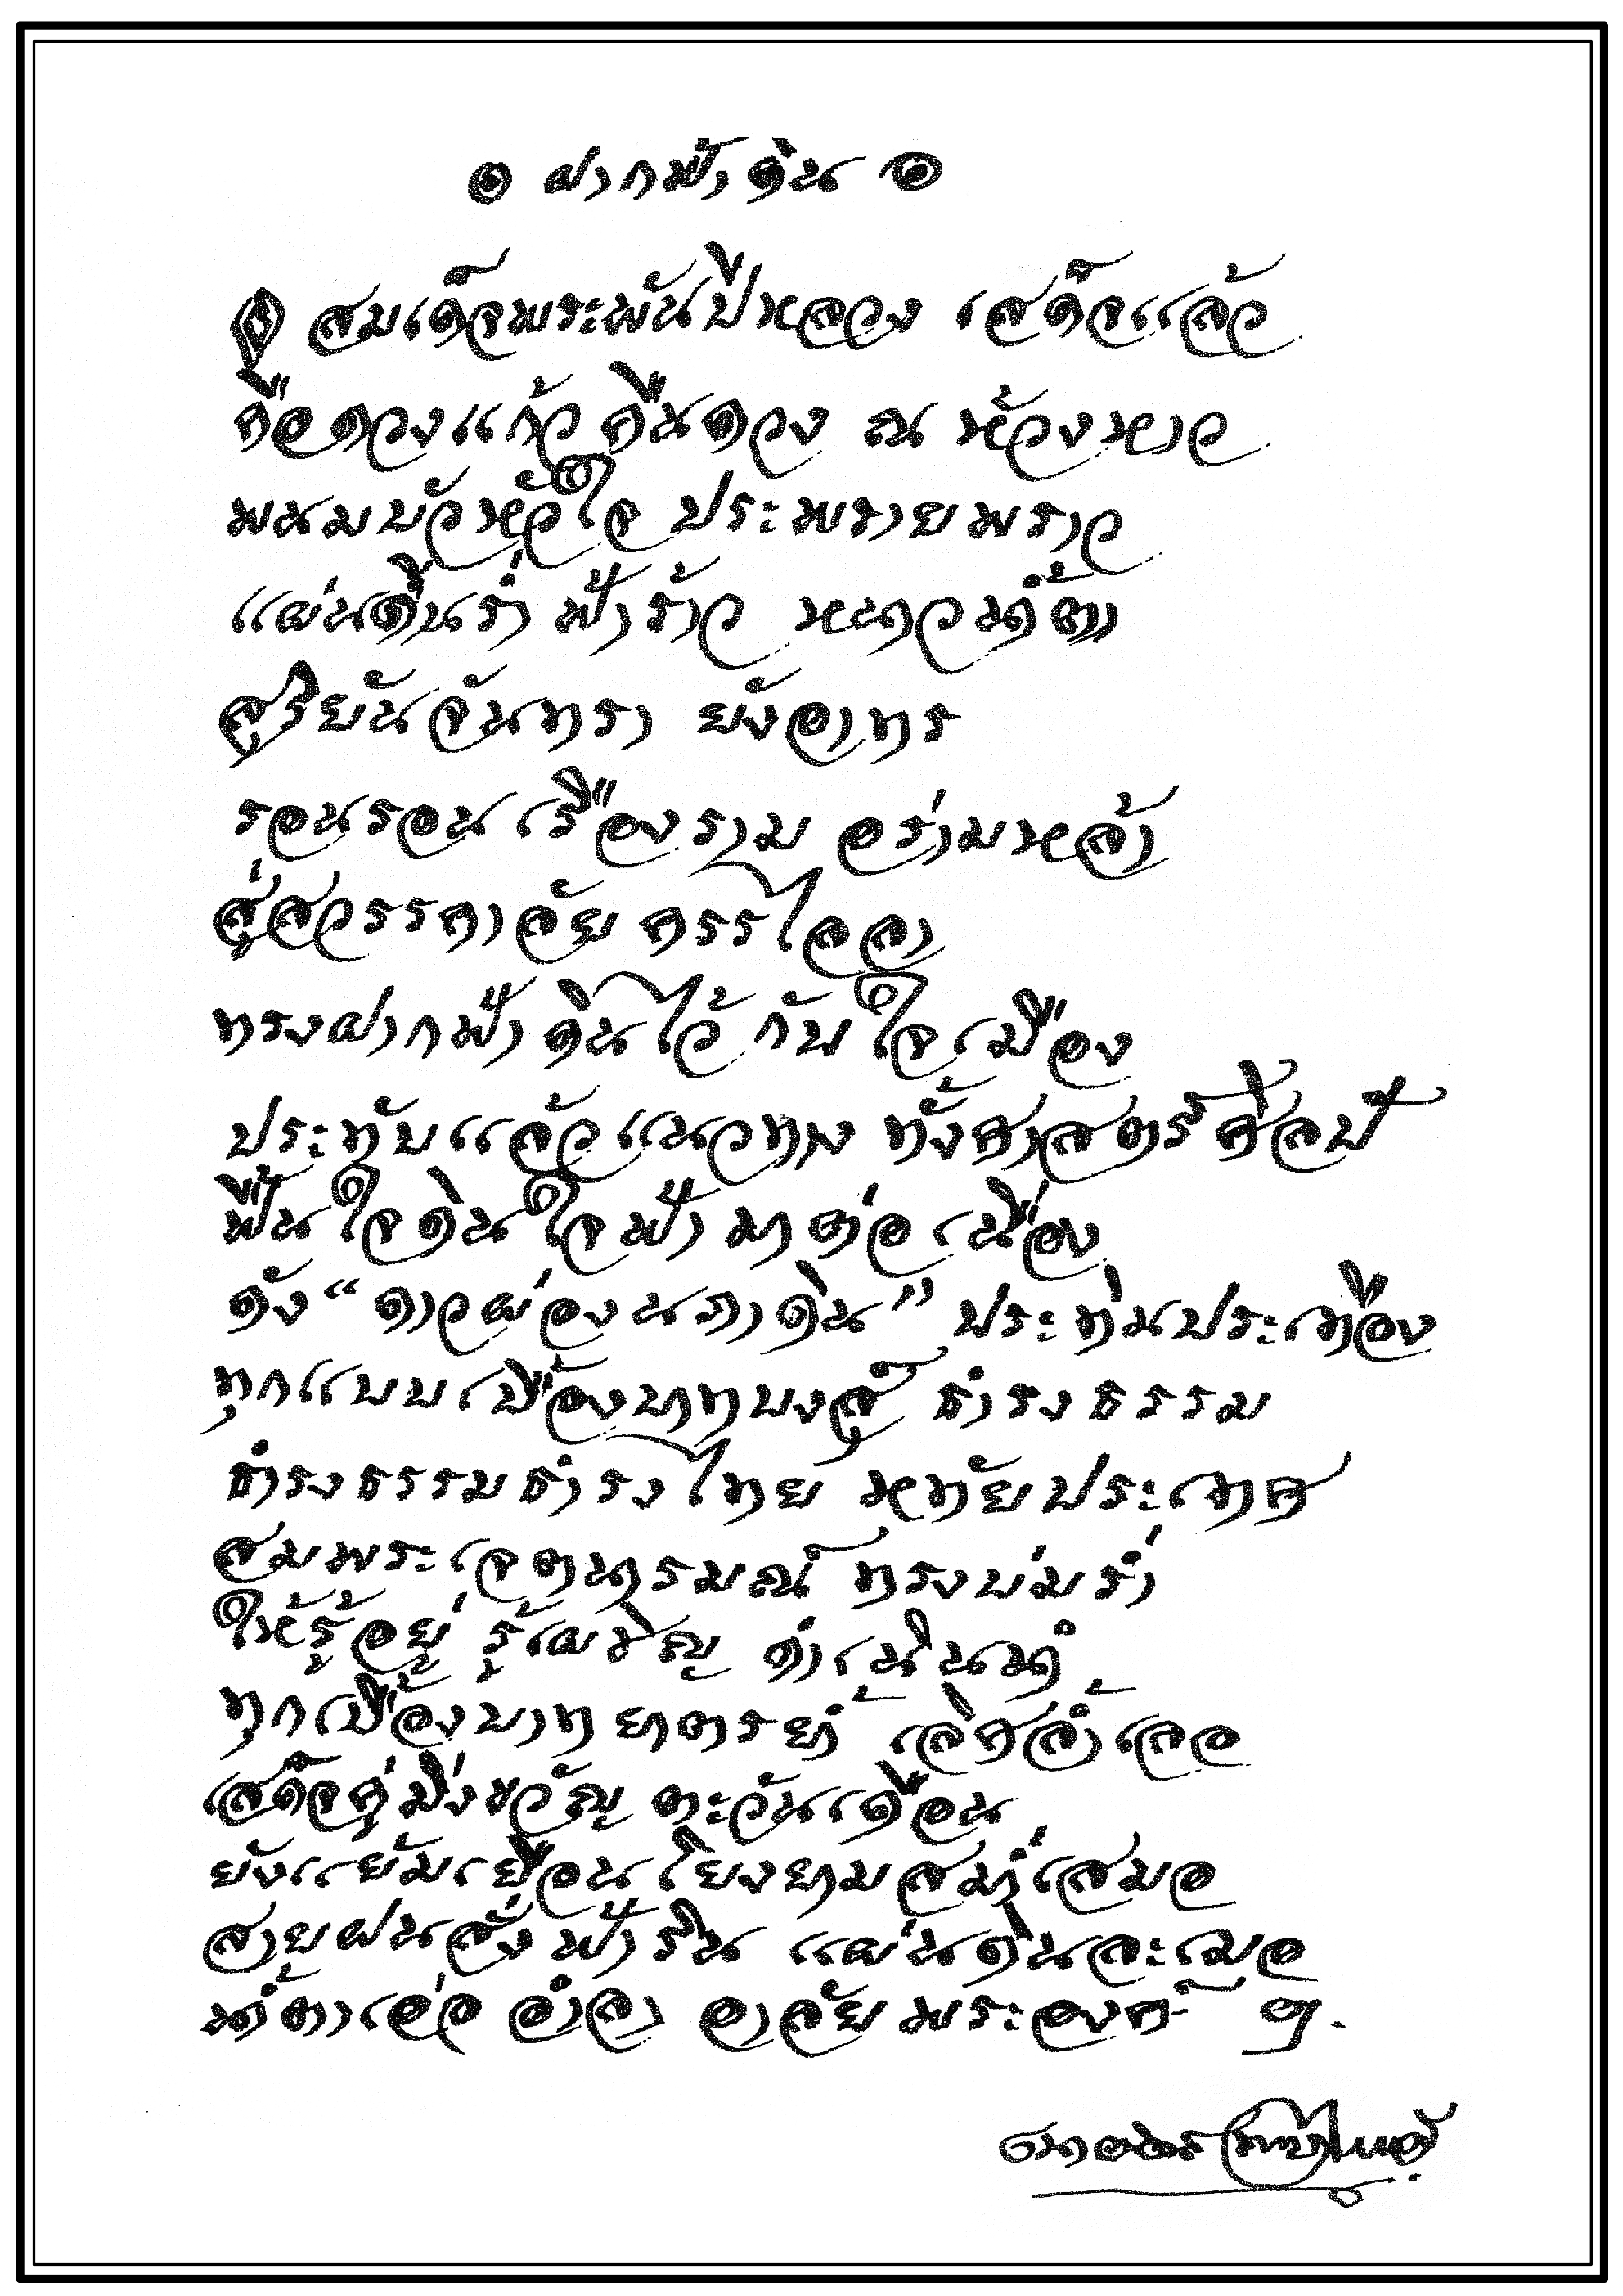 ๏ ฝากฟ้าดิน ๏
สมเด็จพระพันปีหลวง เสด็จแล้ว
คือดวงแก้วคืนดวง ณ ห้วงหาว
พนมบัวหัวใจ ประพรายพราว
แผ่นดินร่ำ ฟ้าร้าว หนาวน้ำตา
สุริยันจันทรา ยังอาทร
รอนรอนเรืองราม อร่ามหล้า
สู่สวรรคาลัย ครรไลลา
ทรงฝากฟ้าดินไว้ กับใจเมือง
ประทับแล้วแนวทาง ทั้งศาสตร์ศิลป์
ฟื้นใจดินใจฟ้า มาต่อเนื่อง
ดัง “ดาวผ่องนภาดิน” ประทิ่นประเทือง
ทุกแบบเบื้องบาทบงสุ์ ธำรงธรรม
ธำรงธรรมธำรงไทย หทัยประเทศ
สมพระเจตนารมณ์ ทรงบ่มร่ำ
ให้รู้อยู่ รู้เผชิญ ดำเนินนำ
ทุกเบื้องบาทยาตรย้ำ เลิศล้ำเลอ
เสด็จคู่มิ่งขวัญ ตะวันเดือน
ยังแย้มเยือน โยงยามสม่ำเสมอ
สายฝนสั่ง ฟ้าริน แผ่นดินละเมอ
น้ำตาเอ่อ อำลา อาลัยพระองค์ ฯ.
เนาวรัตน์ พงษ์ไพบูลย์